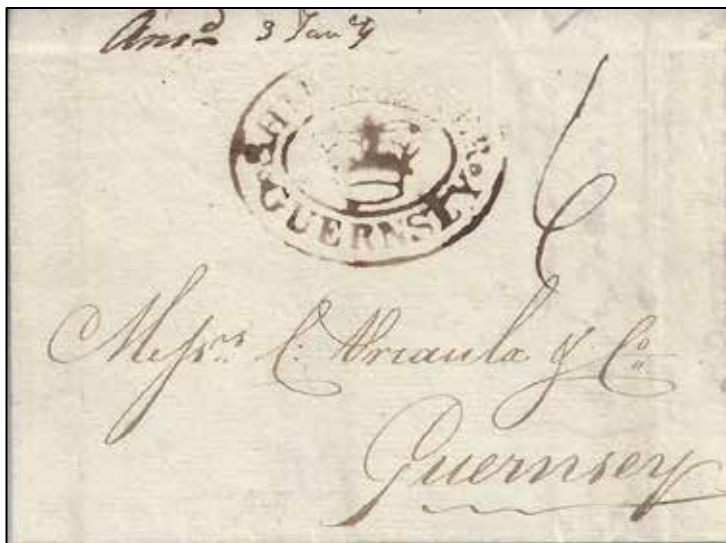 Ansd 3 Jany
SHIP LETTER
GUERNSEY
6
Messrs C: &Co
Guernsey